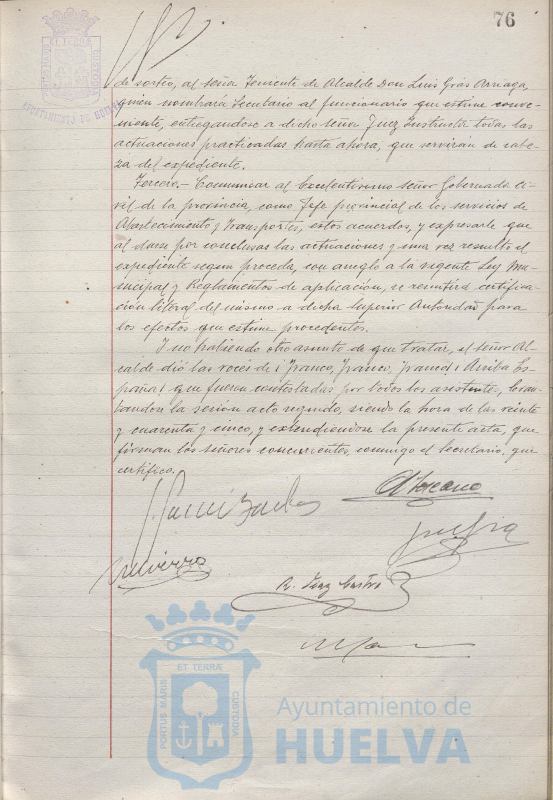 76
AYUNTAMIENTO DE HUELVA
de sorteo, al señor Teniente de Alcalde Don Luis Gras Arriaga,
quien nombrará Secretario al funcionario que estime conve-
niente, entregandose a dicho señor Juez Instructor todas las
actuaciones practicadas hasta ahora, que servirán de cabe-
za del expediente.
Tercero.- Comunicar al Excelentísimo señor Gobernador Ci-
vil de la provincia, como Jefe provincial de los servicios de
Abastecimiento y Transportes, estos acuerdos, y expresarle que
al darse por conclusas las actuaciones y una vez resuelto el
expediente segun proceda, con arreglo a la vigente Ley Mu-
nicipal y Reglamentos de aplicación, se remitirá certifica-
ción literal del mismo a dicha Superior Autoridad para
los efectos que estime procedentes.
Y no habiendo otro asunto de que tratar, el señor Al-
calde dió las voces de ¡Franco, Franco, Franco! ¡Arriba Es-
paña! que fueron contestadas por todos los asistentes, levan-
tandose la sesión acto seguido, siendo la hora de las veinte
y cuarenta y cinco, y extendiendose la presente acta, que
firman los señores concurrentes, conmigo el Secretario, que
certifico.
R. Diaz Castro
PORTUS MARIS ET TERRÆ CUSTODIA
Ayuntamiento de
HUELVA